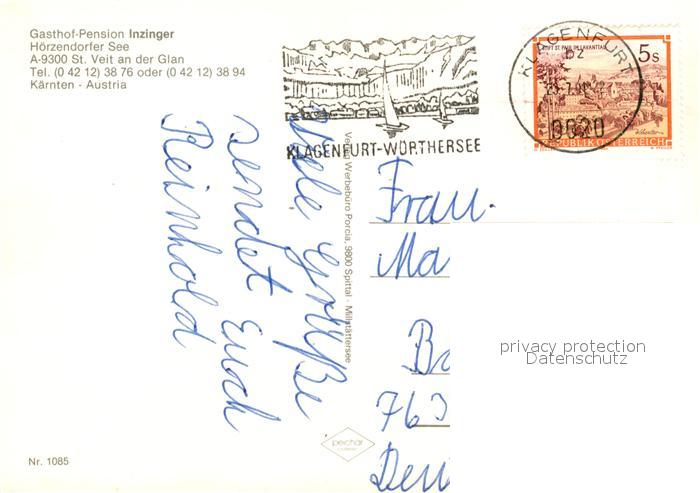 Gasthof-Pension Inzinger
Hörzendorfer See
A-9300 St. Veit an der Glan
Tel. (0 42 12) 38 76 oder (0 42 12) 38 94
Kärnten - Austria
KLAGENFURT-WÖRTHERSEE
KLAGENFURT
bz
0020
STIFT ST. PAUL IM LAVANTTAL
5s
REPUBLIK ÖSTERREICH
Viele Grüße
sendet Euch
Reinhold
Verlag Werbebüro Porcia, 9800 Spittal - Millstättersee
Frau
Ma
763
privacy protection
Datenschutz
Nr. 1085